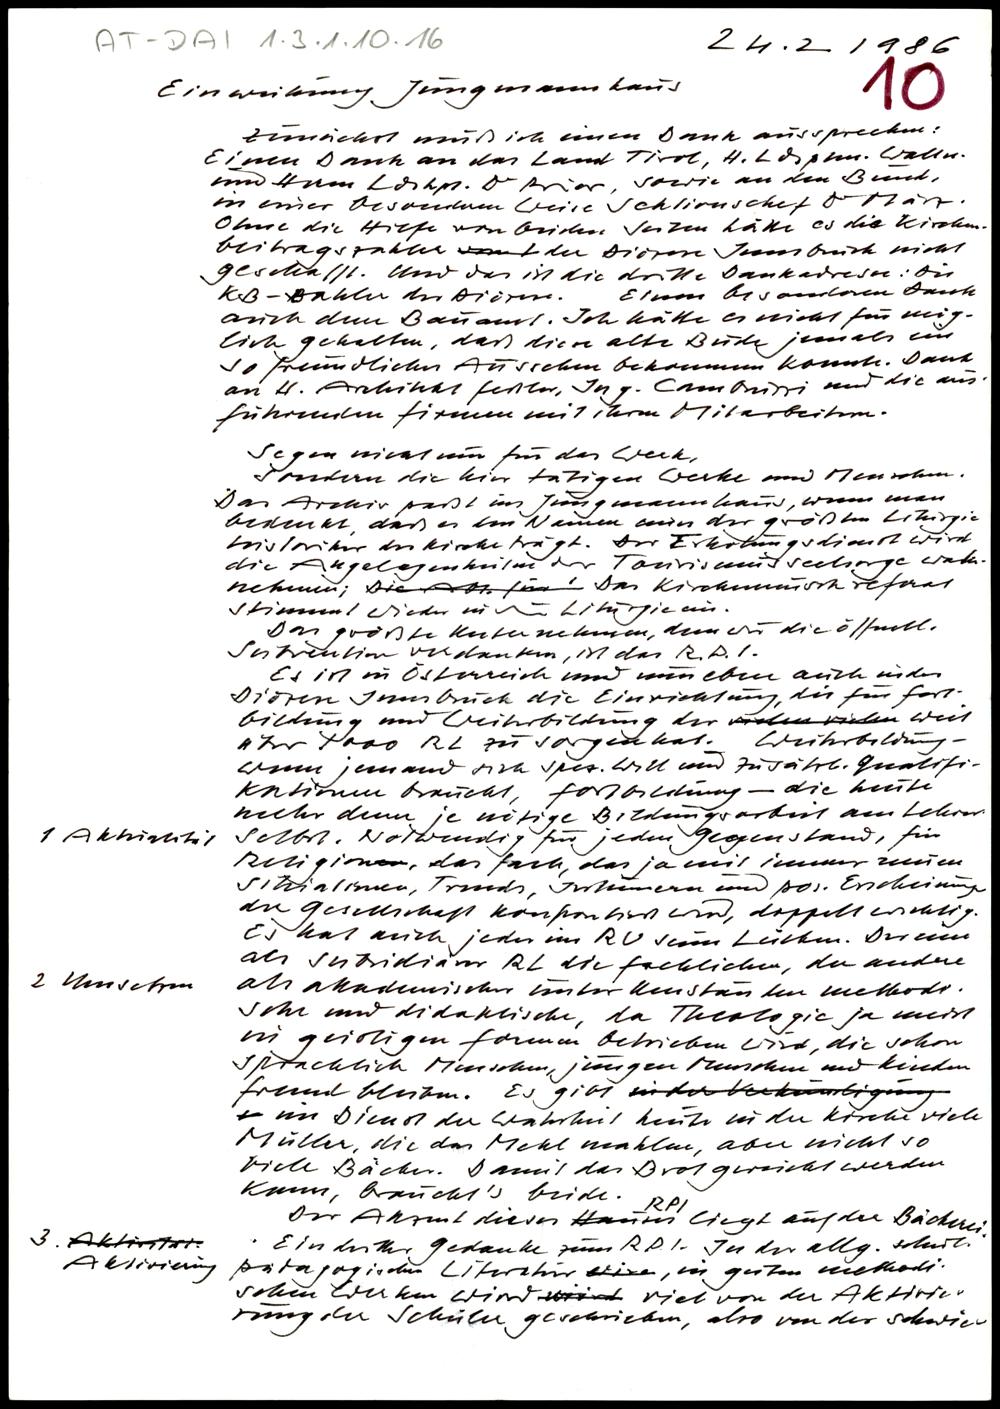 AT-DAI 1.3.1.10.16
24.2 1986
10
Einweihung Jungmannhaus
Zunächst muß ich einen Dank aussprechen:
Einen Dank an das Land Tirol, H. Walln.
und Herrn Dr Prior, sowie an den Bund,
in einer besonderen Weise Sektionschef Dr März.
Ohne die Hilfe von beiden Seiten hätte es die Kirchen-
beitragszahler der Diözese Innsbruck nicht
geschafft. Und das ist die dritte Dankadresse: Die
KB-Zahler der Diözese. Einen besonderen Dank
auch dem Bauamt. Ich hätte es nicht für mög-
lich gehalten, daß diese alte Bude jemals ein
so freundliches Aussehen bekommen konnte. Dank
an H. Architekt Ing. und die aus-
führenden Firmen mit ihren Mitarbeitern.
Segen nicht nur für das Werk,
sondern die hier tätigen Werke und Menschen.
Das Archiv paßt ins Jungmannhaus, wenn man
bedenkt, daß es den Namen eines der größten Liturgie
historiker der Kirche trägt. Der Erholungsdienst wird
die Angelegenheiten der Tourismusseelsorge wahr-
nehmen; Das Kirchenmusikreferat
stimmt wieder in Liturgie ein.
Das größte Unternehmen, dem wir die öffentl.
Subvention verdanken, ist das R.P.I.
Es ist in Österreich und nun eben auch in der
Diözese Innsbruck die Einrichtung, die für Fort-
bildung und Weiterbildung der weit
über 1000 RL zu sorgen hat. Weiterbildung -
wenn jemand sich spez. will und zusätzl. Qualifi-
kationen braucht, Fortbildung - die heute
mehr denn je nötige Bildungsarbeit am Lehrer
1 Aktualität selbst. Notwendig für jeden Gegenstand, für
Religion, das Fach, das ja mit immer neuen
Situationen, Trends, Irrtümern und pos. Erscheinung
der Gesellschaft konfrontiert wird, doppelt wichtig.
Es hat auch jeder im RU seine Lücken. Der eine
als subsidiärer RL die fachlichen, der andere
2 Umsetzen als akademischer unter Umständen methodi-
sche und didaktische, da Theologie ja meist
in geistigen Formen betrieben wird, die schon
sprachlich Menschen, jungen Menschen und Kindern
fremd bleiben. Es gibt in der Verkündigung
im Dienst der Wahrheit heute in der Kirche viele
Müller, die das Mehl mahlen, aber nicht so
viele Bäcker. Damit das Brot gereicht werden
kann, braucht's beide.
Der Akzent dieses Hauses RPI liegt auf der Bäckerei.
3. Aktivität. Ein dritter Gedanke zum R.P.I. In der allg. schul-
Aktivierung pädagogischen Literatur, in guten methodi-
schen Werken wird viel von der Aktivie-
rung der Schüler geschrieben, also von der schwie-